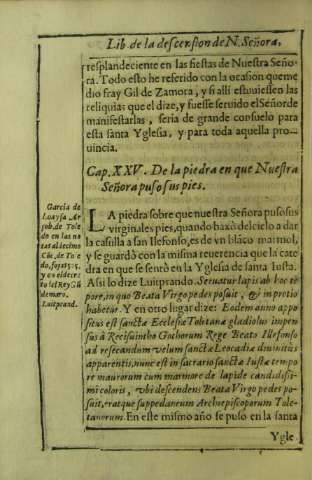 Lib. de la descension de N. Señora,
resplandeciente en las fiestas de Nuestra Seño-
ra. Todo esto he referido con la ocasion que me
dio fray Gil de Zamora, y si alli estuuiessen las
reliquias que el dize, y fuesse seruido el Señor de
manifestarlas, seria de grande consuelo para
esta santa Yglesia, y para toda aquella pro-
uincia.
Cap. XXV. De la piedra en que Nuestra
Señora puso sus pies.
Garcia de
Loaysa Ar
çob. de Tole
do en las no
tas al decimo
de To e
do,
y en el decre
to del Rey Gū
demaro.
Luitprand.
LA piedra sobre que nuestra Señora puso sus
virginales pies, quando baxò del cielo a dar
la casulla a san Ilefonso, es de vn blāco marmol,
y se guardò con la misma reuerencia que la cate
dra en que se sentò en la Yglesia de santa Iusta.
Assi lo dize Luitprando. Seruatur lapis ab hoc tē
pore, in quo Beata Virgo pedes posuit, & in pretio
habetur. Y en otro lugar dize: Eodem anno appo
situs est sanctæ Ecclesiæ Toletanæ gladiolus impen
sus à Recisuintho Gothorum Rege Beato Ilefonso
ad resecandum velum sanctæ Leocadiæ diuinitus
apparentis, nunc est in sacrario sanctæ Iustæ tempo
re maurorum cum marmore de lapide candidissi-
mi coloris, vbi descendens Beata Virgo pedes po-
suit, eratque suppedaneum Archiepiscoporum Tole-
tanorum. En este mismo año se puso en la santa
Ygle